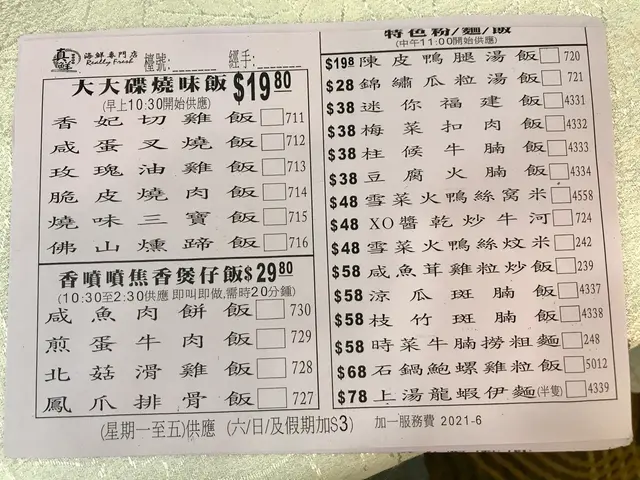 真鮮
海鮮專門店
Really Fresh
檯號:
經手:
大大碟燒味飯 $19.80
(早上10:30開始供應)
香妃切雞飯 711
咸蛋叉燒飯 712
玫瑰油雞飯 713
脆皮燒肉飯 714
燒味三寶飯 715
佛山燻蹄飯 716
香噴噴焦香煲仔飯$29.80
(10:30至2:30供應 即叫即做,需時20分鍾)
咸魚肉餅飯 730
煎蛋牛肉飯 729
北菇滑雞飯 728
鳳爪排骨飯 727
特色粉/麵/飯
(中午11:00開始供應)
$19.8 陳皮鴨腿湯飯 720
$28 錦繡瓜粒湯飯 721
$38 迷你福建飯 4331
$38 梅菜扣肉飯 4332
$38 柱候牛腩飯 4333
$38 豆腐火腩飯 4334
$48 雪菜火鴨絲窩米 4558
$48 XO醬乾炒牛河 724
$48 雪菜火鴨絲炆米 242
$58 咸魚茸雞粒炒飯 239
$58 涼瓜斑腩飯 4337
$58 枝竹斑腩飯 4338
$58 時菜牛腩撈粗麵 248
$68 石鍋鮑螺雞粒飯 5012
$78 上湯龍蝦伊麵(半隻) 4339
(星期一至五)供應 (六/日/及假期加$3) 加一服務費 2021-6